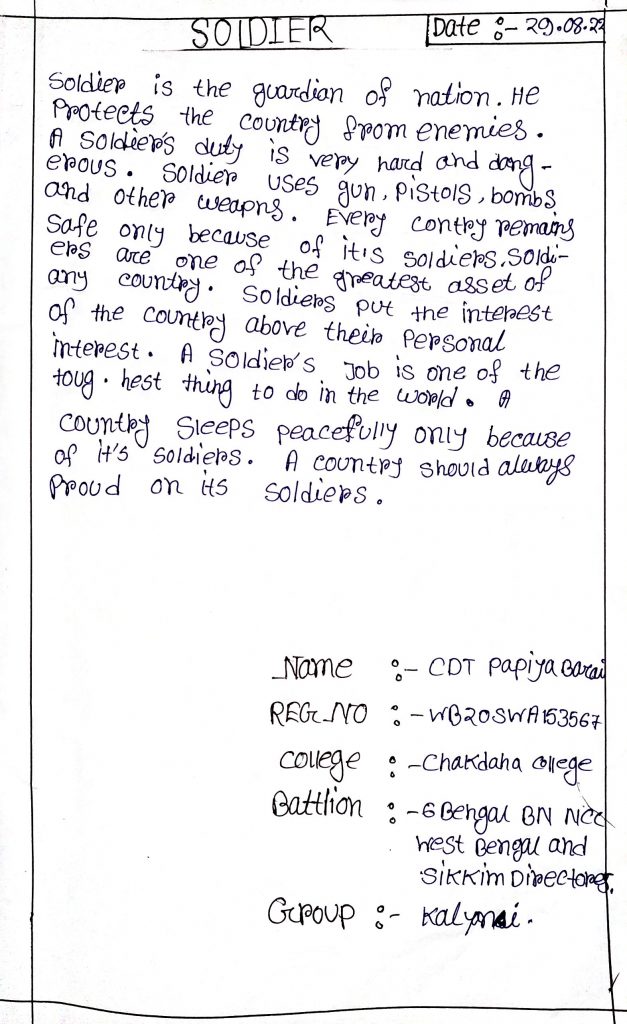 SOLDIER
Date :- 29.08.22
Soldier is the guardian of nation. He
Protects the country from enemies.
A Soldier's duty is very hard and dang-
erous. Soldier uses gun, Pistols, bombs
and other weapns. Every contry remains
Safe only because of it's soldiers. Soldi-
ers are one of the greatest asset of
any country. Soldiers put the interest
of the country above their Personal
interest. A Soldier's Job is one of the
toug. hest thing to do in the world. A
country Sleeps peacefully only because
of it's soldiers. A country should always
Proud on its soldiers.
Name :- CDT Papiya Barai
REG.NO :- WB20SWA153567
College :- Chakdaha College
Battlion :- 6 Bengal BN NCC
West Bengal and
Sikkim Directores.
Group :-